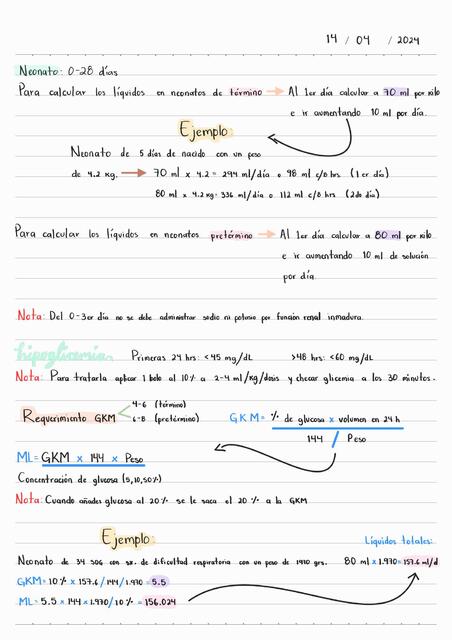 14 / 04 / 2024
Neonato: 0-28 días
Para calcular los líquidos en neonatos de término → Al 1er día calcular a 70 ml por kilo
e ir aumentando 10 ml por día.
Ejemplo
Neonato de 5 días de nacido con un peso
de 4.2 kg. → 70 ml x 4.2 = 294 ml/día o 98 ml c/8 hrs (1er día)
80 ml x 4.2kg = 336 ml/día o 112 ml c/8 hrs (2do día)
Para calcular los líquidos en neonatos pretérmino → Al 1er día calcular a 80 ml por kilo
e ir aumentando 10 ml de solución
por día.
Nota: Del 0-3er día no se debe administrar sodio ni potasio por función renal inmadura.
hipoglicemia Primeras 24 hrs: <45 mg/dL >48 hrs: <60 mg/dL
Nota: Para tratarla aplicar 1 bolo al 10% a 2-4 ml/kg/dosis y checar glicemia a los 30 minutos.
Requerimiento GKM < 4-6 (término)
6-8 (pretérmino)
GKM = % de glucosa x volumen en 24 h
144 / Peso
ML = GKM x 144 x Peso
Concentración de glucosa (5,10,50%)
Nota: Cuando añades glucosa al 20% se le saca el 20% a la GKM
Ejemplo: Líquidos totales:
Neonato de 34 SDG con sx. de dificultad respiratoria con un peso de 1970 grs. 80 ml x 1.970 = 157.6 ml/d
GKM = 10% x 157.6 / 144 / 1.970 = 5.5
ML = 5.5 x 144 x 1.970 / 10% = 156.024